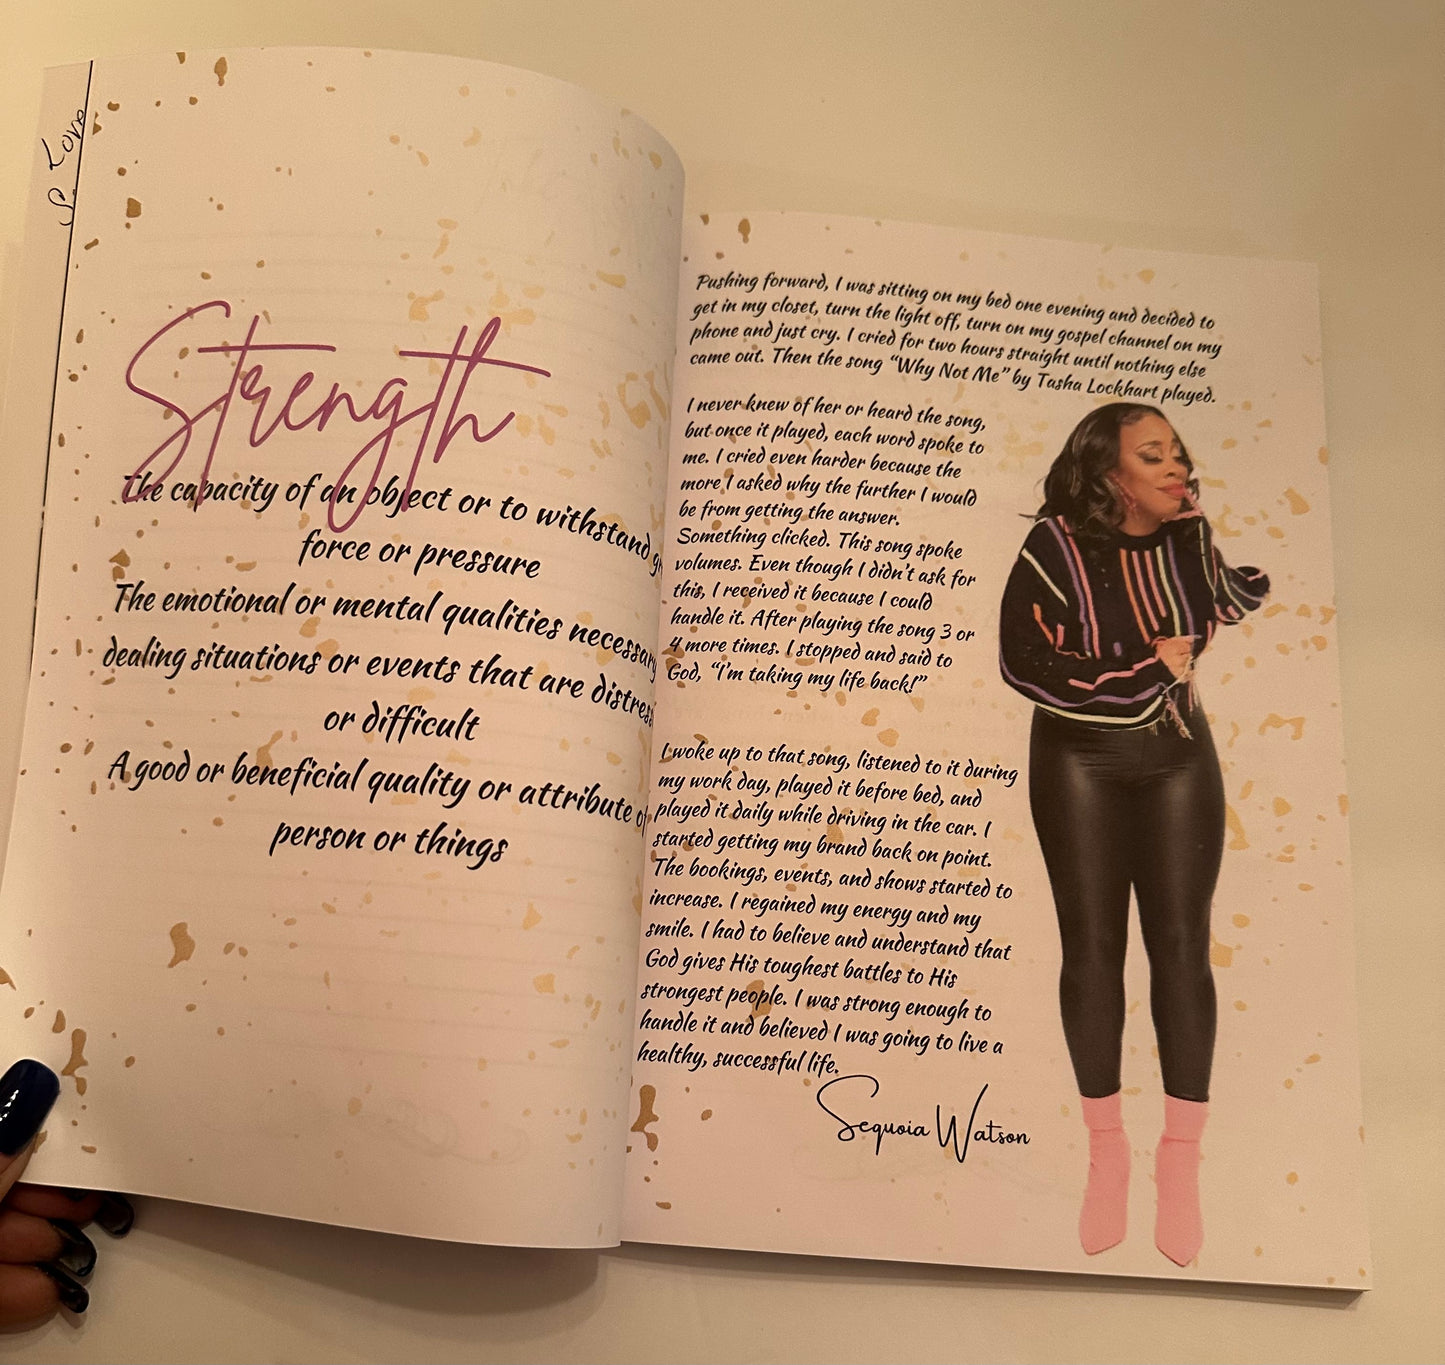 S. Love
Strength
The capacity of an object or to withstand
force or pressure
The emotional or mental qualities necessary
dealing situations or events that are distress
or difficult
A good or beneficial quality or attribute
person or things
Pushing forward, I was sitting on my bed one evening and decided to
get in my closet, turn the light off, turn on my gospel channel on my
phone and just cry. I cried for two hours straight until nothing else
came out. Then the song “Why Not Me” by Tasha Lockhart played.
I never knew of her or heard the song,
but once it played, each word spoke to
me. I cried even harder because the
more I asked why the further I would
be from getting the answer.
Something clicked. This song spoke
volumes. Even though I didn't ask for
this, I received it because I could
handle it. After playing the song 3 or
4 more times. I stopped and said to
God, “I'm taking my life back!”
I woke up to that song, listened to it during
my work day, played it before bed, and
played it daily while driving in the car. I
started getting my brand back on point.
The bookings, events, and shows started to
increase. I regained my energy and my
smile. I had to believe and understand that
God gives His toughest battles to His
strongest people. I was strong enough to
handle it and believed I was going to live a
healthy, successful life.
Sequoia Watson